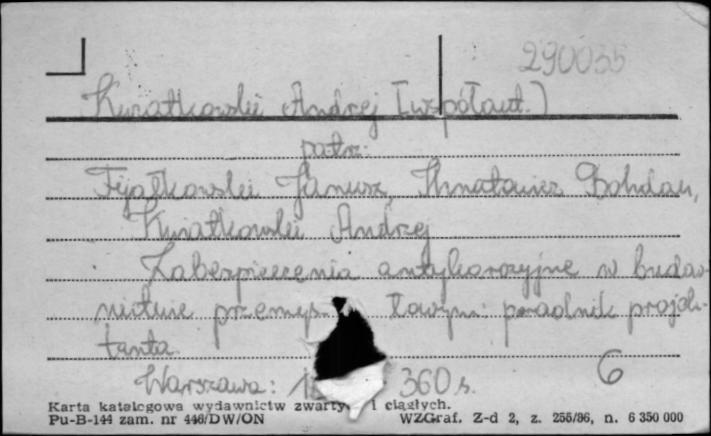 290035
Kwiatkowski Andrzej [współaut.]
patrz:
Fijałkowski Janusz, Bohdan,
Kwiatkowski Andrzej
Zabezpieczenia antykorozyjne w budow-
nictwie przemysłowym: poradnik projek-
tanta.
Warszawa: 360 s. 6
Karta katalogowa wydawnictw zwartych i ciągłych.
Pu-B-144 zam. nr 446/DW/ON WZGraf. Z-d 2, z. 255/86, n. 6 350 000